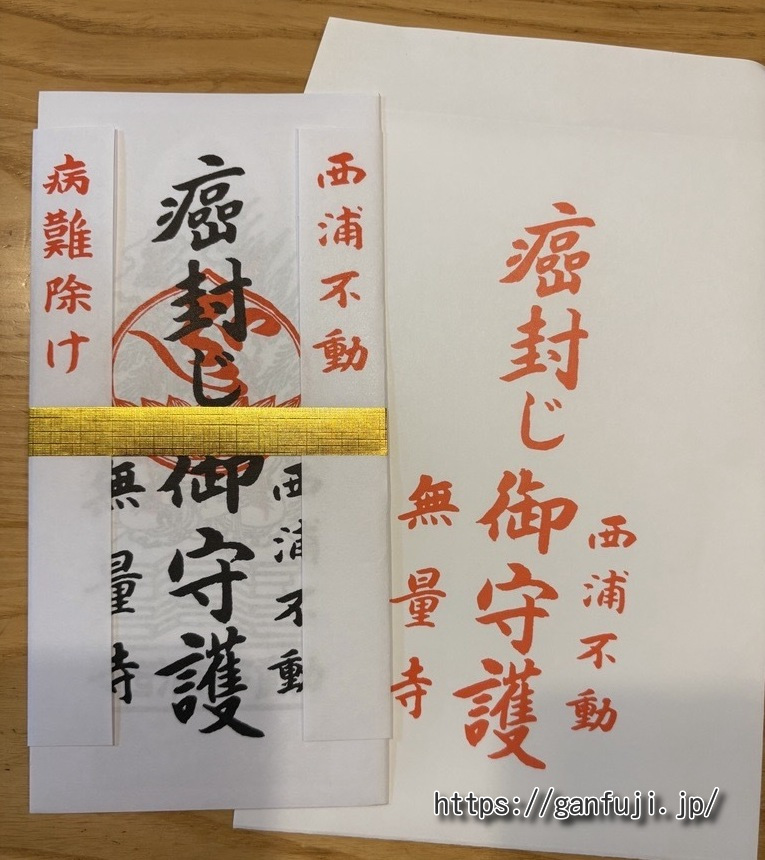 西浦不動
病難除け
癌封じ御守護
西浦不動
無量寺
癌封じ御守護
西浦不動
無量寺
https://ganfuji.jp/